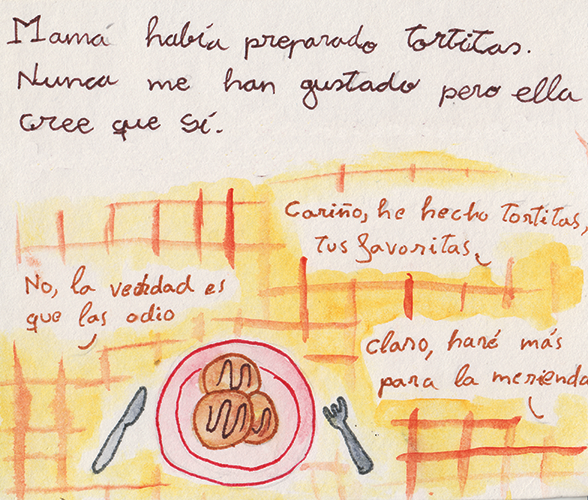 Mamá había preparado tortitas.
Nunca me han gustado pero ella
cree que sí.
Cariño, he hecho tortitas,
tus favoritas
No, la verdad es
que las odio
claro, haré más
para la merienda